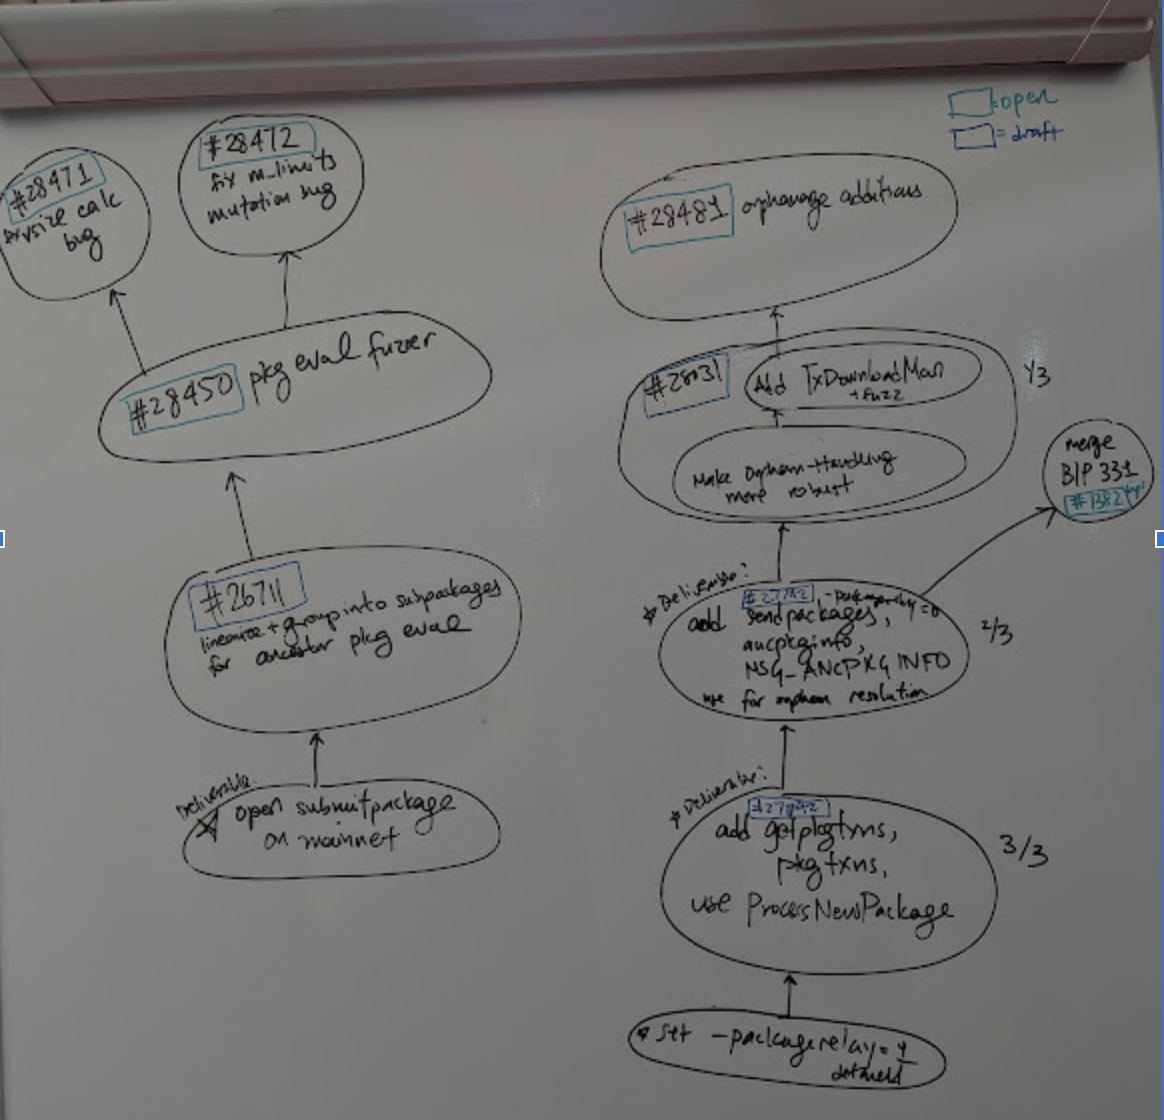 =open
= draft
#28471
fix vsize calc
bug
#28472
fix m_limits
mutation bug
#28450 pkg eval fuzzer
#26711
linearize + group into subpackages
for ancestor pkg eval
Deliverable:
open submitpackage
on mainnet
#28481 orphanage additions
#28031
Add TxDownloadMan
+fuzz
1/3
Make orphan-handling
more robust
merge
BIP 331
* Deliverable:
#27742
add sendpackages,
ancpkginfo,
MSG_ANCPKGINFO
use for orphan resolution
2/3
* Deliverable:
#27742
add getpkgtxns,
pkgtxns,
use ProcessNewPackage
3/3
* Set -packagerelay=1
default